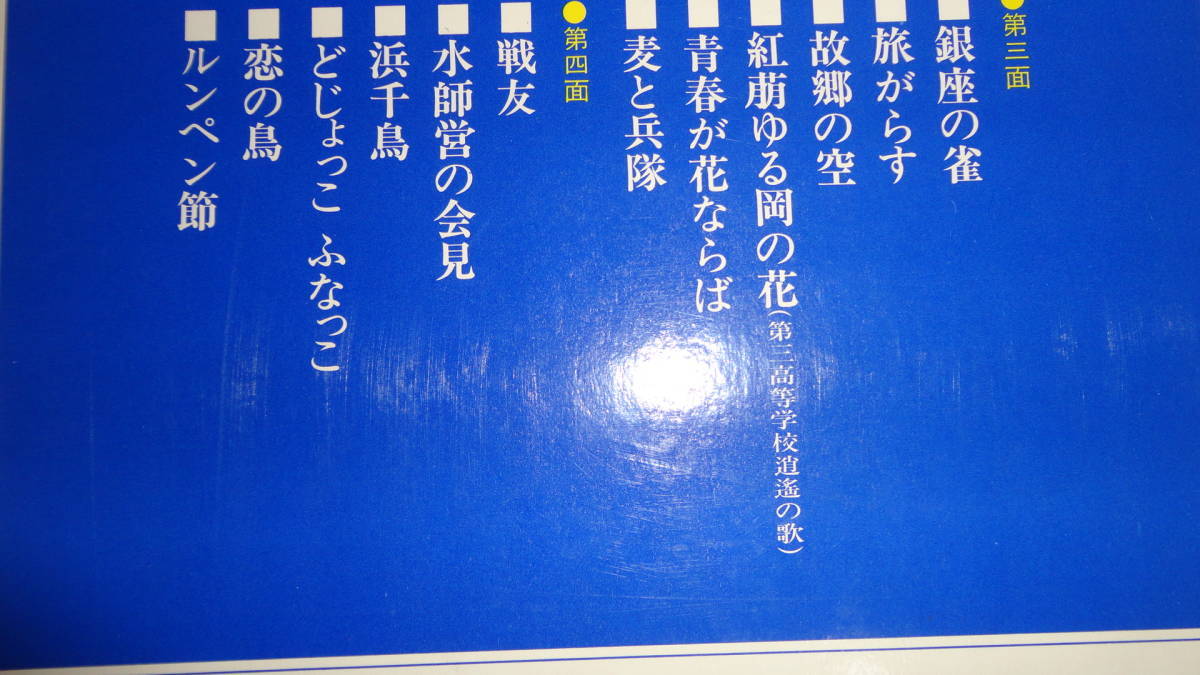 ●第三面
■銀座の雀
■旅がらす
■故郷の空
■紅萠ゆる岡の花(第三高等学校逍遙の歌)
■青春が花ならば
■麦と兵隊
●第四面
■戦友
■水師営の会見
■浜千鳥
■どじょっこ ふなっこ
■恋の鳥
■ルンペン節